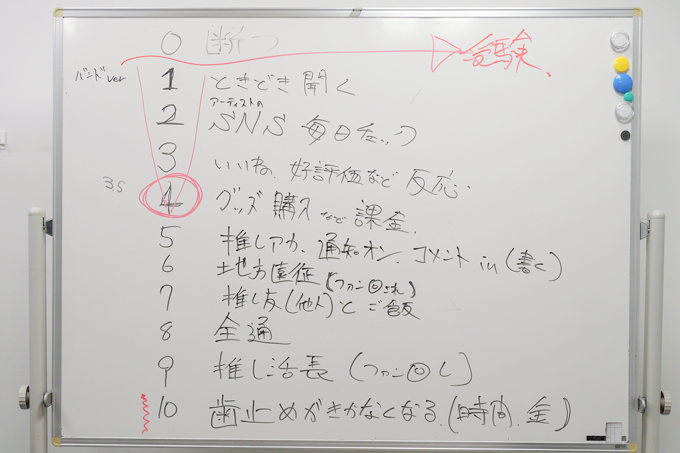 0 断つ 受験、
バンドver.
1 ときどき聞く
アーティストの
2 SNS 毎日チェック
3 いいね、好評価など反応
3.5
4 グッズ購入など課金.
5 推しアカ、通知オン、コメントin(書く)
6 土地方遠征(ファン回され)
7 推し友(他人)とご飯
8 全通
9 推し活長(ファン回し)
10 歯止めがきかなくなる.(時間、金)